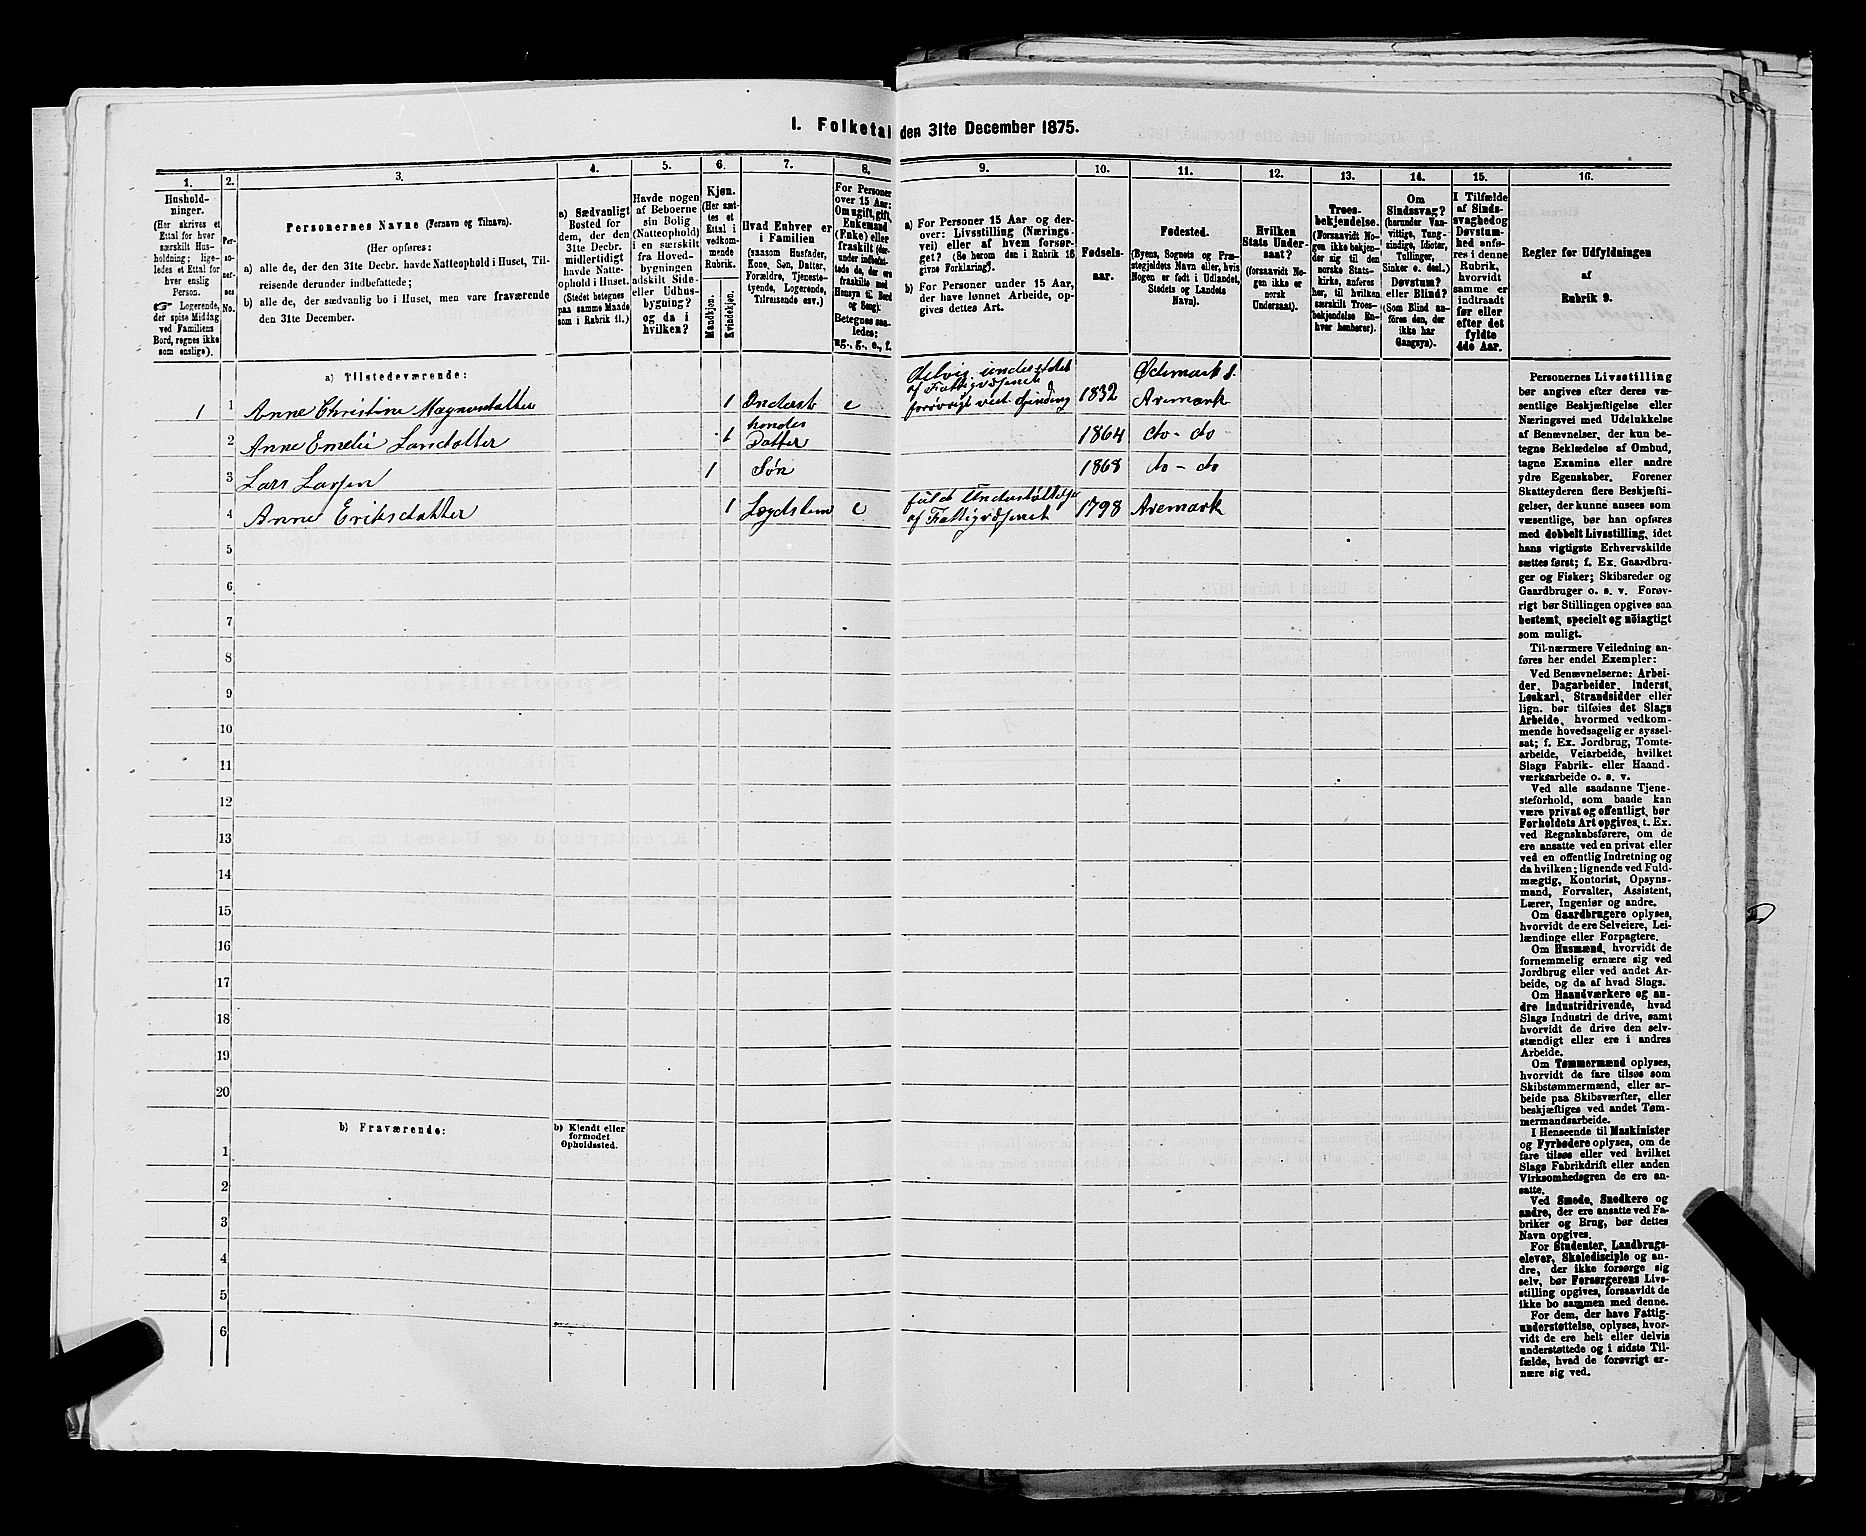 I. Folketal den 31te December 1875.
1.
Hushold-
ninger.
(Her skrives et
Ettal for hver
særskilt Hus-
holdning; lige-
ledes et Ettal for
hver enslig
Person.
☞ Logerende,
der spise Middag
ved Familiens
Bord, regnes ikke
som enslige).
2.
Per-
so-
ner-
nes
No.
3.
Personernes Navne (Fornavn og Tilnavn).
(Her opføres:
a) alle de, der den 31te Decbr. havde Natteophold i Huset, Til-
reisende derunder indbefattede;
b) alle de, der sædvanlig bo i Huset, men vare fraværende
den 31te December.
4.
a) Sædvanligt
Bosted for
dem, der den
31te Decbr.
midlertidigt
havde Natte-
ophold i Huset.
(Stedet betegnes
paa samme Maade
som i Rubrik 11.)
5.
Havde nogen
af Beboerne
sin Bolig
(Natteophold)
i en særskilt
fra Hoved-
bygningen
adskilt Side-
eller Udhus-
bygning?
og da i
hvilken?
6.
Kjøn.
(Her sæt-
tes et
Ettal i
vedkom-
mende
Rubrik.
Mandkjøn.
Kvindekjøn.
7.
Hvad Enhver er
i Familien
(saasom Husfader,
Kone, Søn, Datter,
Forældre, Tjeneste-
tyende, Logerende,
Tilreisende osv.)
8.
For Personer
over 15 Aar:
Om ugift, gift,
Enkemand
(Enke) eller
fraskilt (der-
under indbefat-
tede de, der ere
fraskilte med
Hensyn til Bord
og Seng).
Betegnes saa-
ledes:
ug., g., e., f.
9.
a) For Personer 15 Aar og der-
over: Livsstilling (Nærings-
vei) eller af hvem forsør-
get? (Se herom den i Rubrik 16
givne Forklaring).
b) For Personer under 15 Aar,
der have lønnet Arbeide, op-
gives dettes Art.
10.
Fødsels-
aar.
11.
Fødested.
(Byens, Sognets og Præ-
stegjeldets Navn eller, hvis
Nogen er født i Udlandet,
Stedets og Landets
Navn).
12.
Hvilken
Stats Under-
saat?
(forsaavidt No-
gen ikke er
norsk
Undersaat).
13.
Troes-
bekjendelse.
(Forsaavidt No-
gen ikke bekjen-
der sig til den
norske Stats-
kirke, anføres
her, til hvilken
særskilt Troes-
bekjendelse En-
hver henhører).
14.
Om
Sindssvag?
(herunder Van-
vittige, Tung-
sindige, Idioter,
Tullinger,
Sinker o. desl.)
Døvstum?
eller Blind?
(Som Blind an-
føres den, der
ikke har
Gangsyn).
15.
I Tilfælde
af Sinds-
svaghed og
Døvstum-
hed anfø-
res i denne
Rubrik,
hvorvidt
samme er
indtraadt
før eller
efter det
fyldte
4de Aar.
16.
Regler for Udfyldningen
af
Rubrik 9.
a) Tilstedeværende:
1 1 Anne Christine Magnusdatter 1 Underst e Delvis understøttet af Fattigvæsenet forøvrigt ved Spinding 1832 Ødemark s. Aremark
2 Anne Emelie Larsdatter 1 hendes Datter 1864 do - do
3 Lars Larsen 1 Søn 1868 do - do
4 Anne Eriksdatter 1 Lægdslem e fuld Understøttelse af Fattigvæsenet 1798 Aremark
5
6
7
8
9
10
11
12
13
14
15
16
17
18
19
20
b) Fraværende:
b) Kjendt eller
formodet
Opholdssted.
1
2
3
4
5
6
Personernes Livsstilling
bør angives efter deres væ-
sentlige Beskjæftigelse eller
Næringsvei med Udelukkelse
af Benævnelser, der kun be-
tegne Beklædelse af Ombud,
tagne Examina eller andre
ydre Egenskaber. Forener
Skatteyderen flere Beskjæfti-
gelser, der kunne ansees som
væsentlige, bør han opføres
med dobbelt Livsstilling, idet
hans vigtigste Erhvervskilde
sættes først; f. Ex. Gaardbru-
ger og Fisker; Skibsreder og
Gaardbruger o. s. v. Forøv-
rigt bør Stillingen opgives saa
bestemt, specielt og nøiagtigt
som muligt.
Til nærmere Veiledning an-
føres her endel Exempler:
Ved Benævnelserne: Arbei-
der, Dagarbeider, Inderst,
Løskarl, Strandsidder eller
lign. bør tilføies det Slags
Arbeide, hvormed vedkom-
mende hovedsagelig er syssel-
sat; f. Ex. Jordbrug, Tomte-
arbeide, Veiarbeide, hvilket
Slags Fabrik- eller Haand-
værksarbeide o. s. v.
Ved alle saadanne Tjene-
steforhold, som baade kan
være privat og offentligt, bør
Forholdets Art opgives, t. Ex.
ved Regnskabsførere, om de
ere ansatte ved en privat eller
ved en offentlig Indretning og
da hvilken; lignende ved Fuld-
mægtig, Kontorist, Opsyns-
mand, Forvalter, Assistent,
Lærer, Ingeniør og andre.
Om Gaardbrugere oplyses,
hvorvidt de ere Selveiere, Lei-
lændinge eller Forpagtere.
Om Husmænd, hvorvidt de
fornemmelig ernære sig ved
Jordbrug eller ved andet Ar-
beide, og da af hvad Slags.
Om Haandværkere og an-
dre industridrivende, hvad
Slags Industri de drive, samt
hvorvidt de drive den selv-
stændigt eller ere i andres
Arbeide.
Om Tømmermænd oplyses,
hvorvidt de fare tilsøs som
Skibstømmermænd, eller ar-
beide paa Skibsværfter, eller
beskjæftiges ved andet Tøm-
mermandsarbeide.
I Henseende til Maskinister
og Fyrbødere oplyses, om de
fare tilsøs eller ved hvilket
Slags Fabrikdrift eller anden
Virksomhedsgren de ere an-
satte.
Ved Smede, Snedkere og
andre, der ere ansatte ved Fa-
briker og Brug, bør dettes
Navn opgives.
For Studenter, Landbrugs-
elever, Skoledisciple og an-
dre, der ikke forsørge sig
selv, bør Forsørgerens Livs-
stilling opgives, forsaavidt de
ikke bo sammen med denne.
For dem, der have Fattig-
understøttelse, oplyses, hvor-
vidt de ere helt eller delvis
understøttede og i sidste Til-
fælde, hvad de forøvrigt er-
nære sig ved.